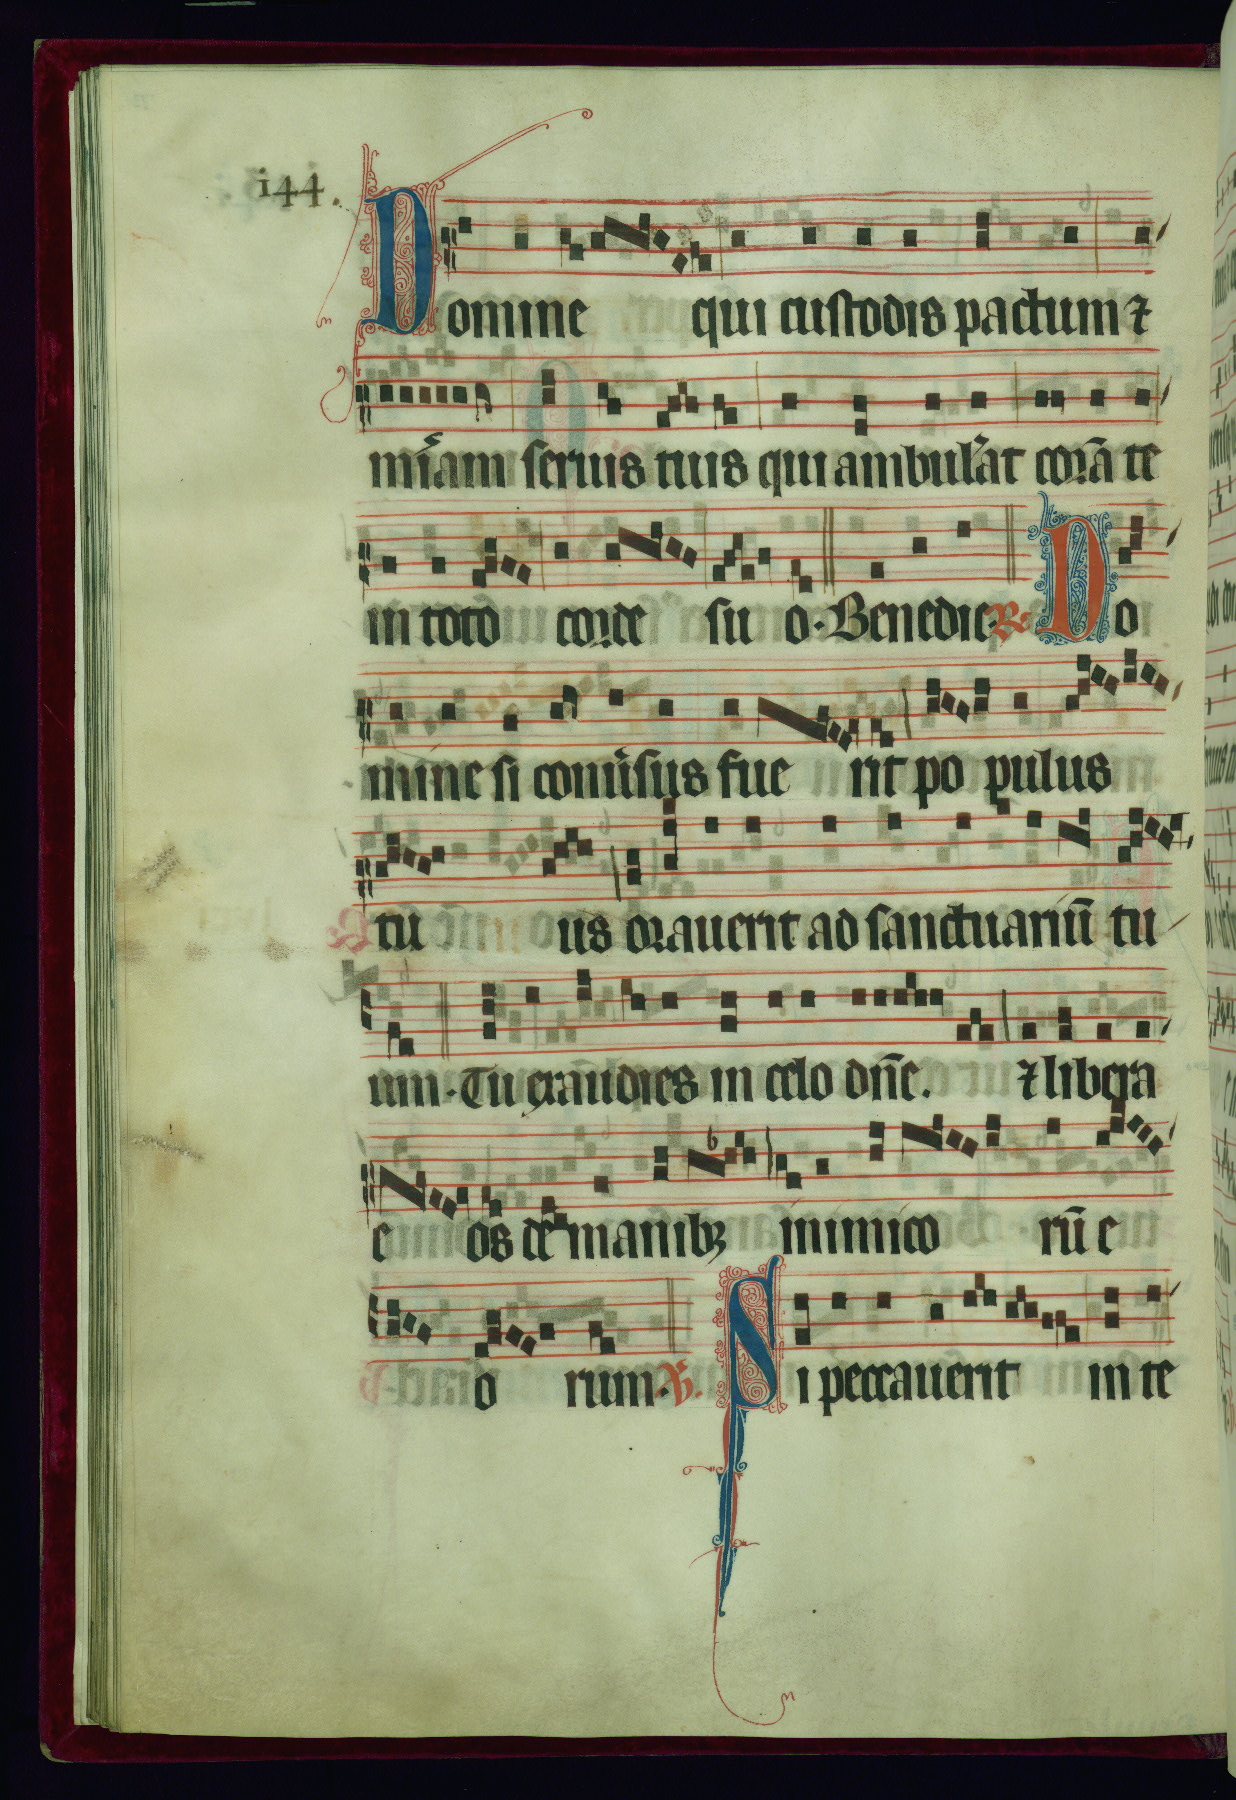 i44.
Domine qui custodis pactum ⁊
mīam seruis tuis qui ambulāt corā te
in toto corde su o. Benedic. ℟ Do
mine si conūsus fue rit po pulus
tu us orauerit ad sanctuariū tu
um. Tu exaudies in celo dn̄e. ⁊ libera
e os de manibꝫ inimico rū e
o rum. ℣. Si peccauerit in te